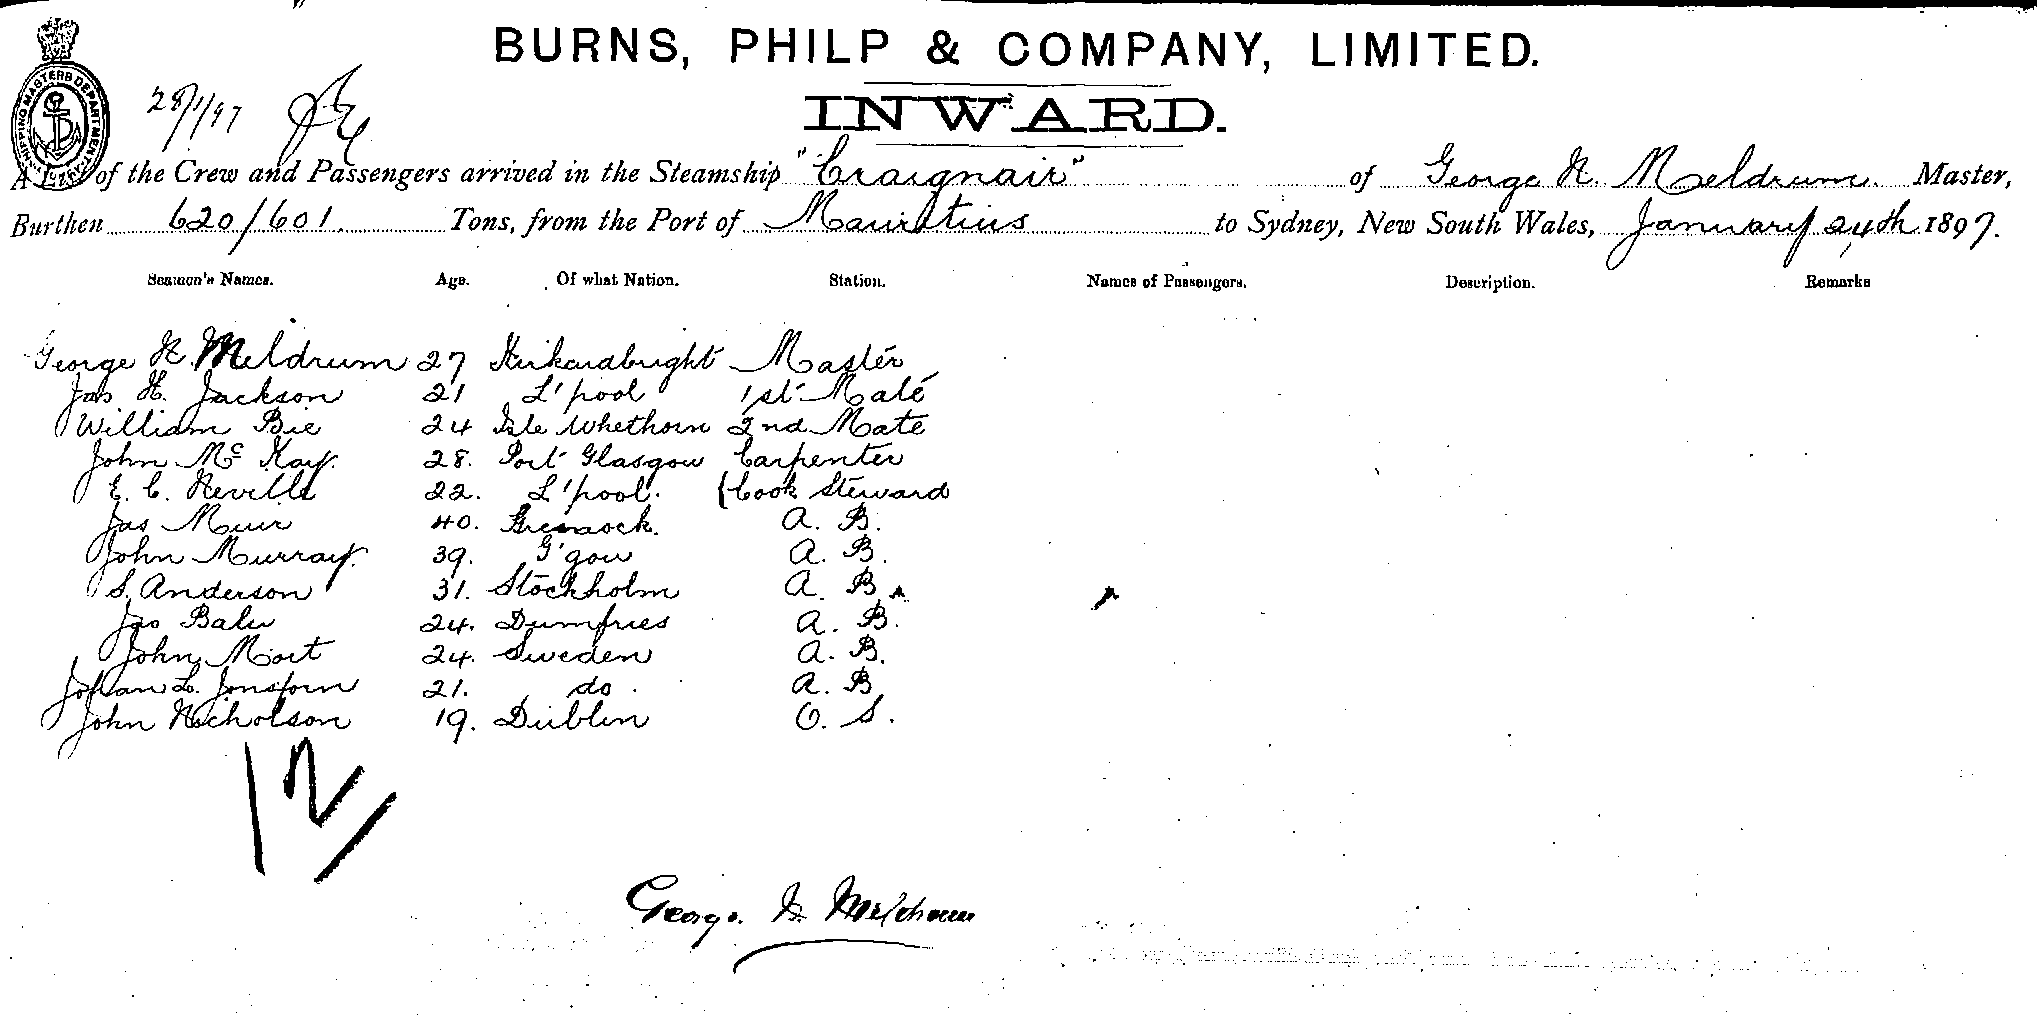 BURNS, PHILP & COMPANY, LIMITED.
INWARD.
SHIPPING MASTERS DEPARTMENT
28/1/97
A List of the Crew and Passengers arrived in the Steamship "Craignair" of George N. Meldrum. Master,
Burthen 620/601. Tons, from the Port of Mauritius to Sydney, New South Wales, January 24th 1897.
Seamen's Names. Age. Of what Nation. Station. Names of Passengers. Description. Remarks
George N. Meldrum 27 Kirkcudbright Master
Jas H. Jackson 21 L'pool 1st Mate
William Bie 24 Isle Whethorn 2nd Mate
John Mc Kay. 28. Port Glasgow Carpenter
E. C. Neville 22. L'pool. Cook Steward
Jas Muir 40. Greenock. A. B.
John Murray. 39. G'gow A. B.
S. Anderson 31. Stockholm A. B.
Jas 24. Dumfries A. B.
John Mort 24. Sweden A. B.
Johan L. 21. do. A. B.
John Nicholson 19. Dublin O. S.
12/
George N. Meldrum